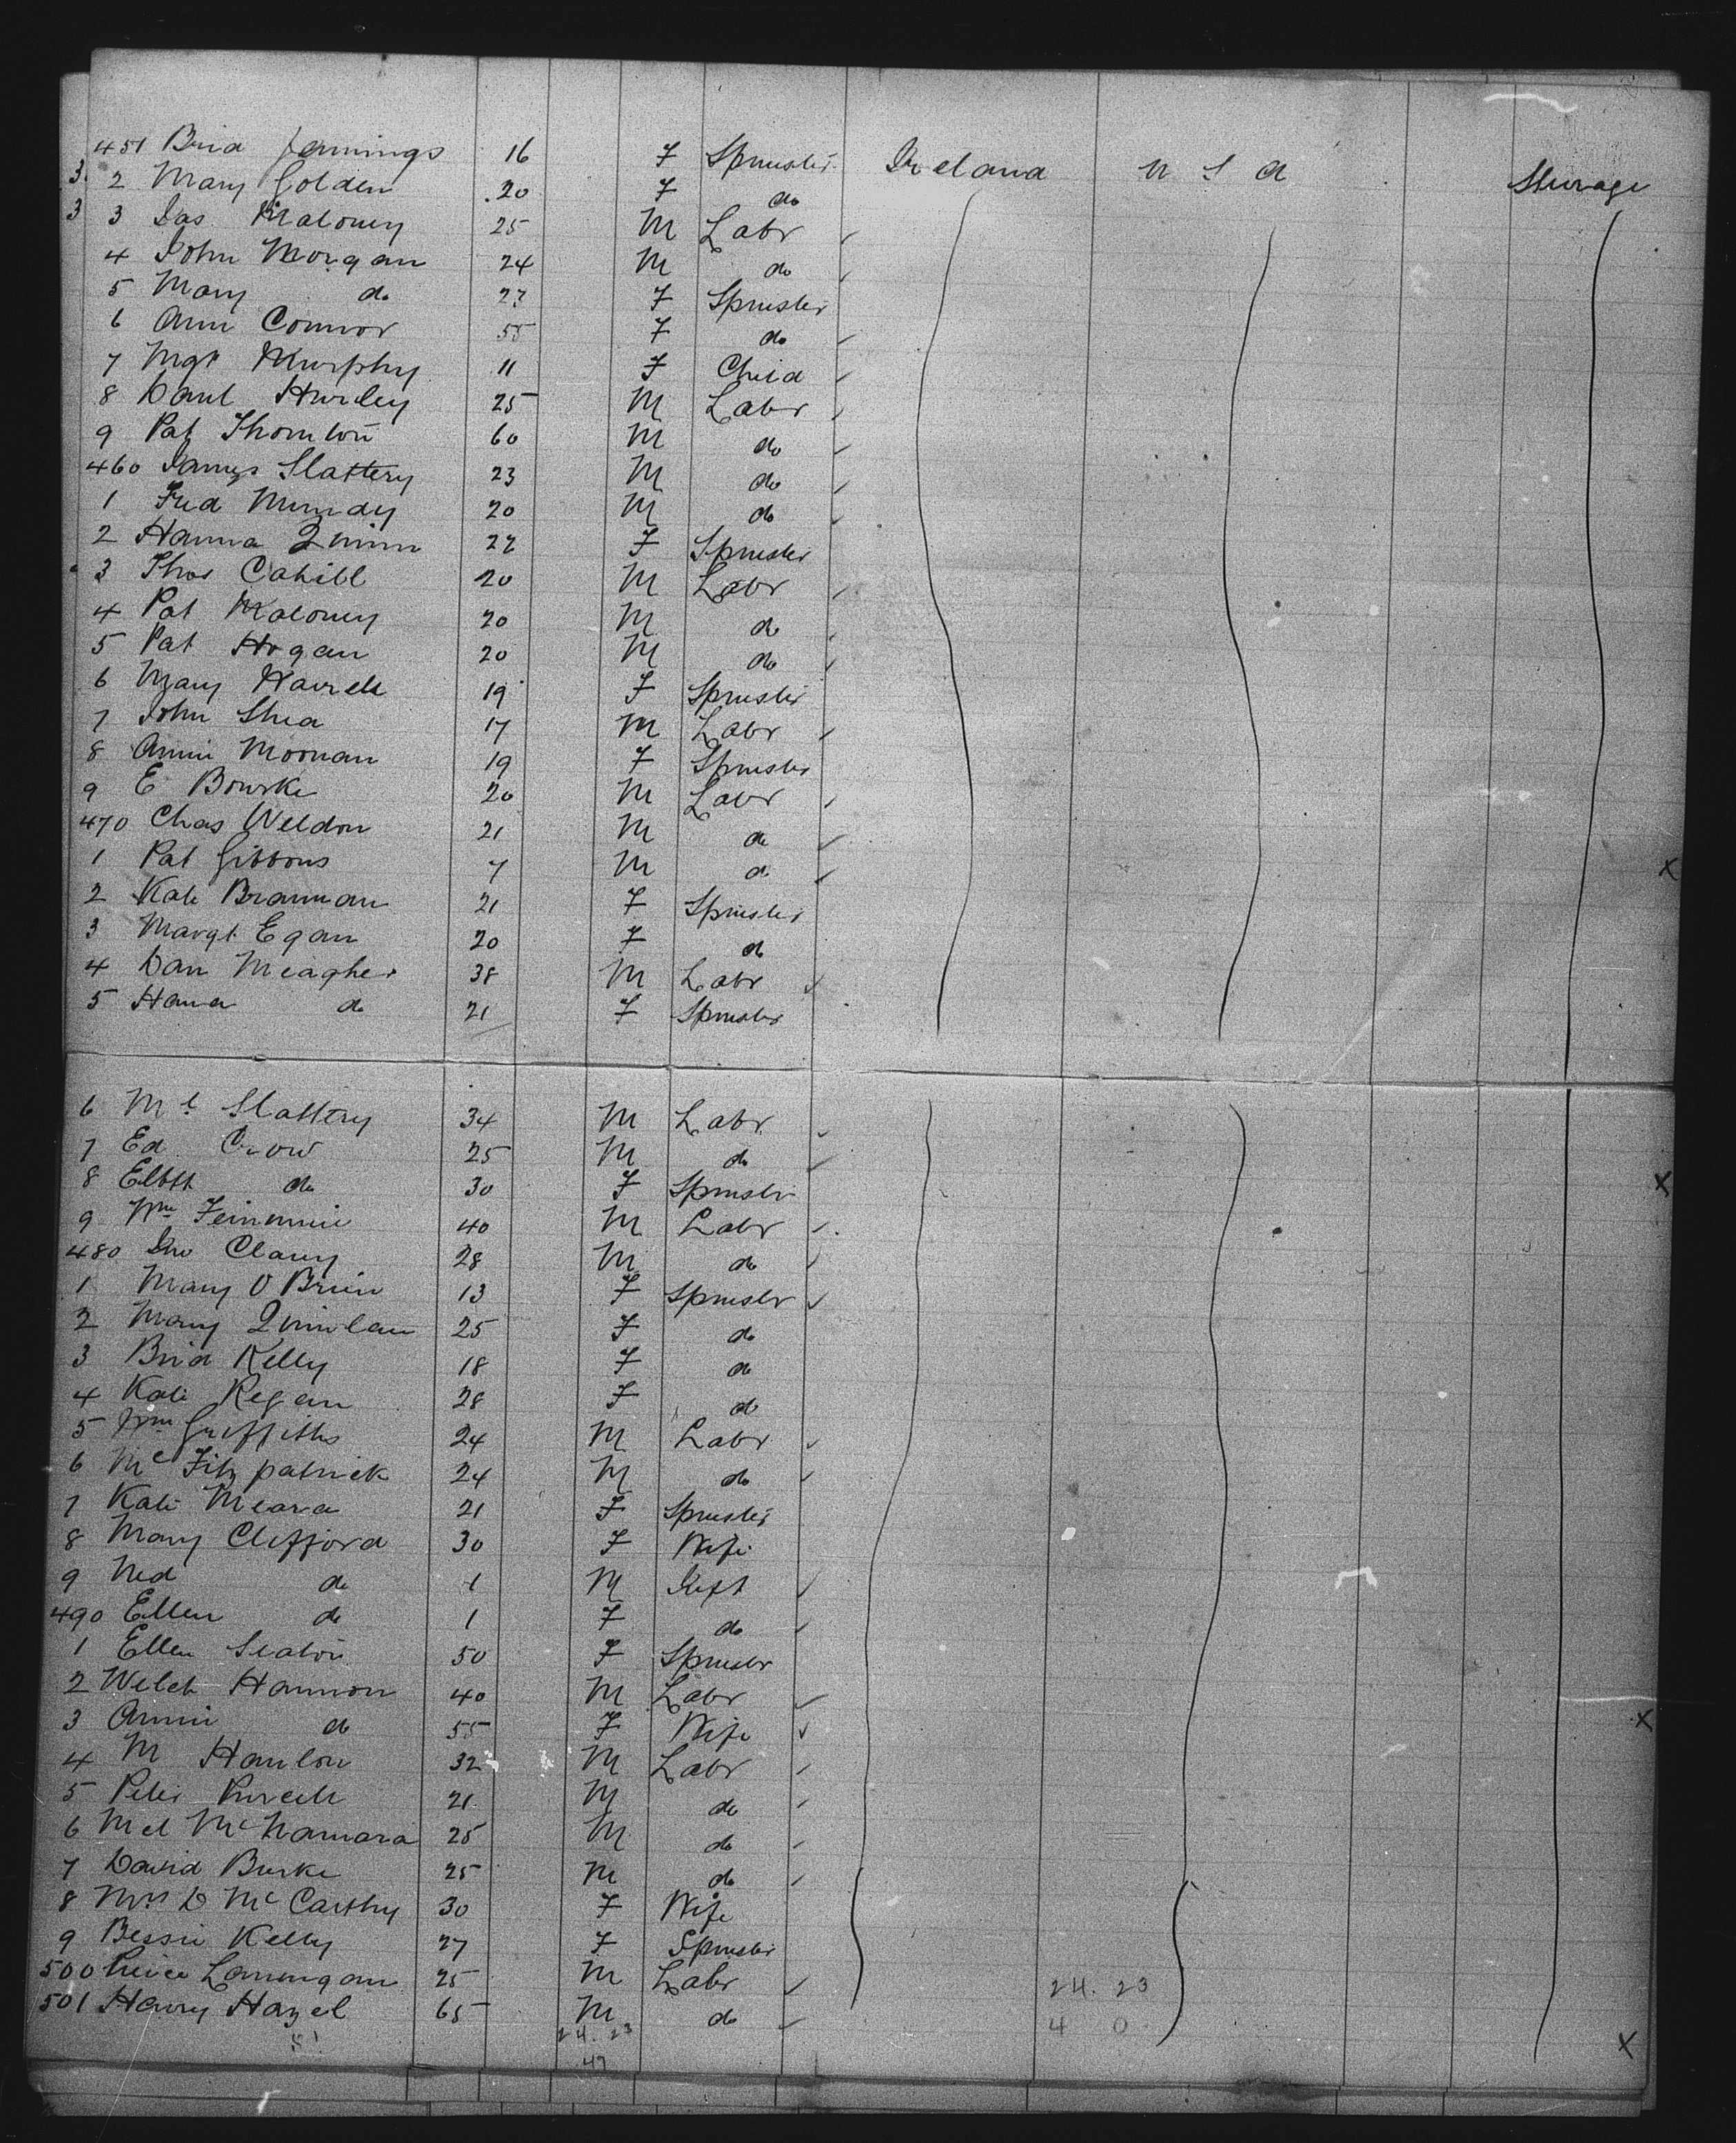 451 Brid Jennings 16 F Spinster Ireland U S A Steerage
3 2 Mary Golden 20 F do
3 3 Jas Maloney 25 M Labr
4 John Morgan 24 M do
5 Mary do 27 F Spinster
6 Ann Connor 55 F do
7 Mgt Murphy 11 F Child
8 Danl Hurley 25 M Labr
9 Pat Thornton 60 M do
460 James Slattery 23 M do
1 Fred Munday 20 M do
2 Hanna Quinn 22 F Spinster
3 Thos Cahill 20 M Labr
4 Pat Maloney 20 M do
5 Pat Hogan 20 M do
6 Mary 19 F Spinster
7 John Shea 17 M Labr
8 Annie Moonan 19 F Spinster
9 E Bourke 20 M Labr
470 Chas Weldon 21 M do
1 Pat Gibbons 7 M do X
2 Kate Brannan 21 F Spinster
3 Margt Egan 20 F do
4 Dan Meagher 38 M Labr
5 Hana do 21 F Spinster
6 Ml Slattery 34 M Labr
7 Ed Crow 25 M do
8 Elbth do 30 F Spinster X
9 Wm 40 M Labr
480 Jno Clancy 28 M do
1 Mary O Brien 13 F Spinster
2 Mary Quinlan 25 F do
3 Brid Kelly 18 F do
4 Kate Regan 28 F do
5 Wm Griffiths 24 M Labr
6 Mc Fitzpatrick 24 M do
7 Kate Meara 21 F Spinster
8 Mary Clifford 30 F Wife
9 Ned do 1 M Inft
490 Ellen do 1 F do
1 Ellen 50 F Spinster
2 Welch Hannon 40 M Labr
3 Annie do 55 F Wife X
4 M Hanlon 32 M Labr
5 Peter Purcell 21 M do
6 Mcl McNamara 25 M do
7 David Burke 25 M do
8 Mrs D McCarthy 30 F Wife
9 Bessie Kelly 27 F Spinster
500 Peirce Lannigan 25 M Labr 24. 23
501 Harry Hazel 65 M do 4 0 X
24. 23
47